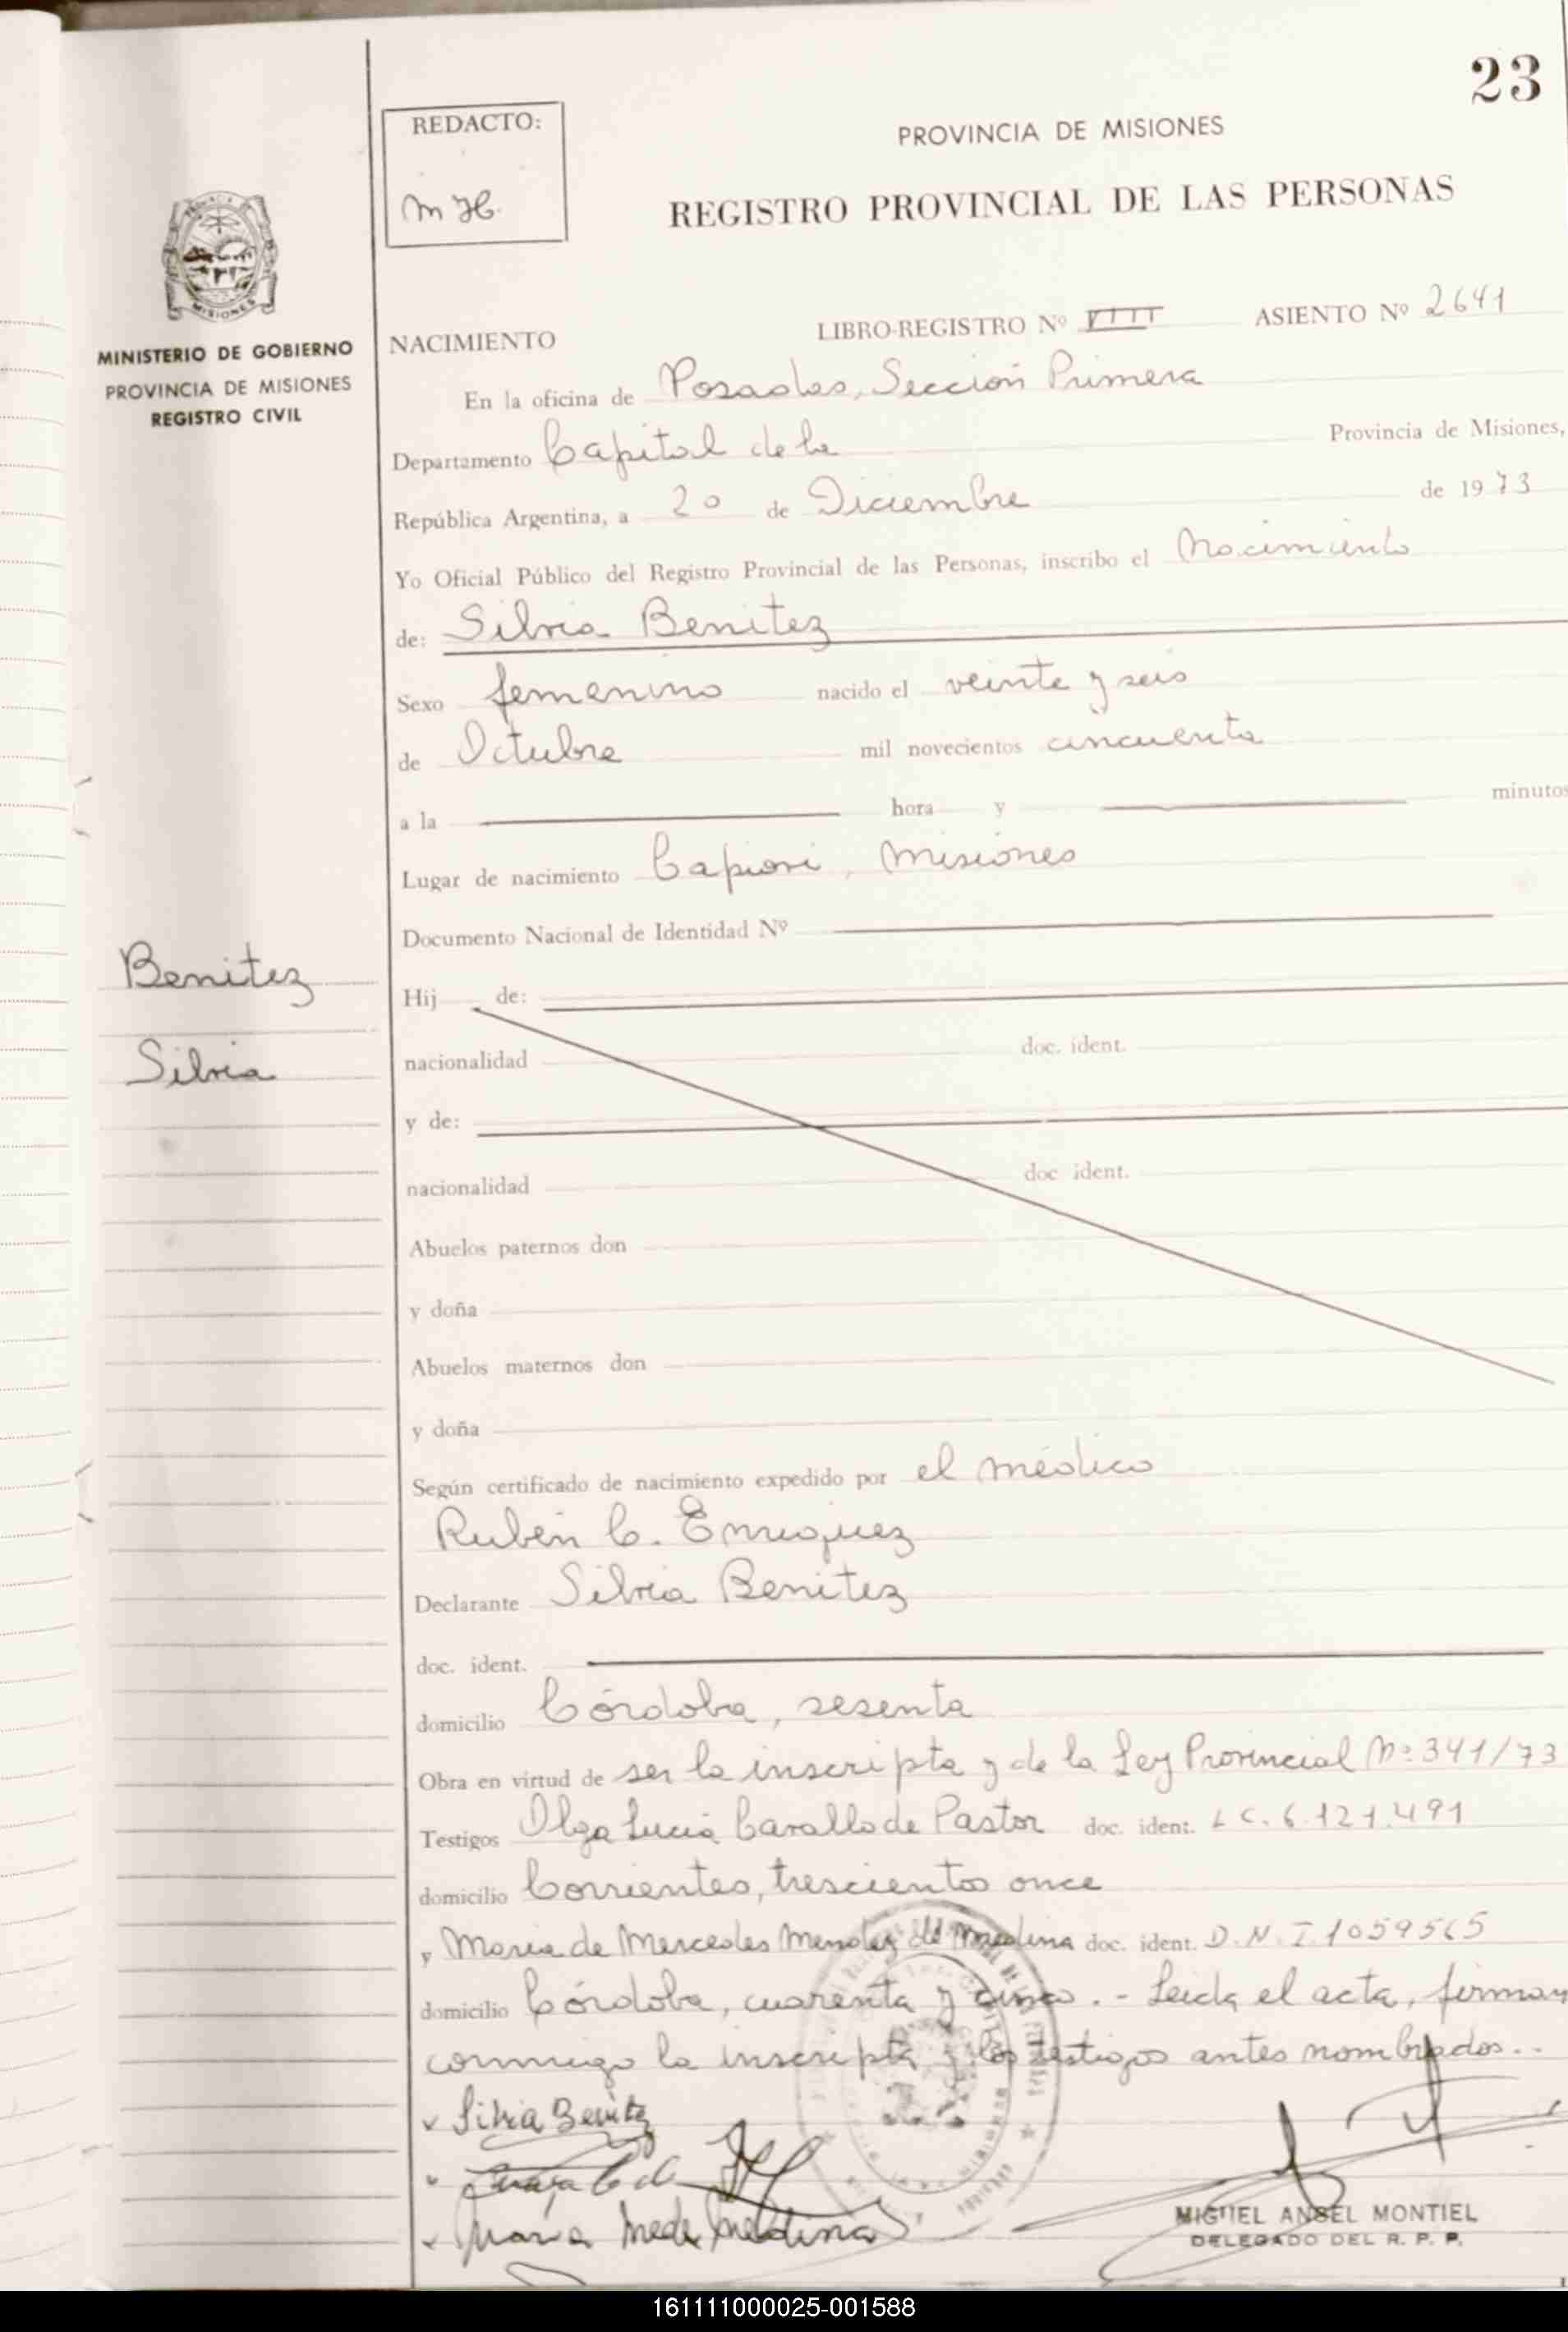 23
REDACTO:
M H.
PROVINCIA DE MISIONES
REGISTRO PROVINCIAL DE LAS PERSONAS
MISIONES
MINISTERIO DE GOBIERNO
PROVINCIA DE MISIONES
REGISTRO CIVIL
NACIMIENTO LIBRO-REGISTRO Nº VIII ASIENTO Nº 2641
En la oficina de Posadas, Sección Primera
Departamento Capital de la Provincia de Misiones,
República Argentina, a 20 de Diciembre de 1973
Yo Oficial Público del Registro Provincial de las Personas, inscribo el Nacimiento
de: Silvia Benitez
Sexo femenino nacido el veinte y seis
de Octubre mil novecientos cincuenta
a la hora y minutos
Lugar de nacimiento Capiovi, Misiones
Documento Nacional de Identidad Nº
Benitez
Silvia
Hij de:
nacionalidad doc. ident.
y de:
nacionalidad doc ident.
Abuelos paternos don
y doña
Abuelos maternos don
y doña
Según certificado de nacimiento expedido por el médico
Rubén C. Enriquez
Declarante Silvia Benitez
doc. ident.
domicilio Córdoba, sesenta
Obra en virtud de ser la inscripta y de la Ley Provincial Nº 341/73
Testigos Olga Lucia Carallo de Pastor doc. ident. L C. 6.121.491
domicilio Corrientes, trescientos once
y Maria de Mercedes Mendez de Medina doc. ident. D.N.I 1059565
domicilio Córdoba, cuarenta y cinco.- Leida el acta, firman
conmigo la inscripta y los testigos antes nombrados..
Silvia Benitez
Maria Mede Medina
MIGUEL ANGEL MONTIEL
DELEGADO DEL R. P. P.
161111000025-001588